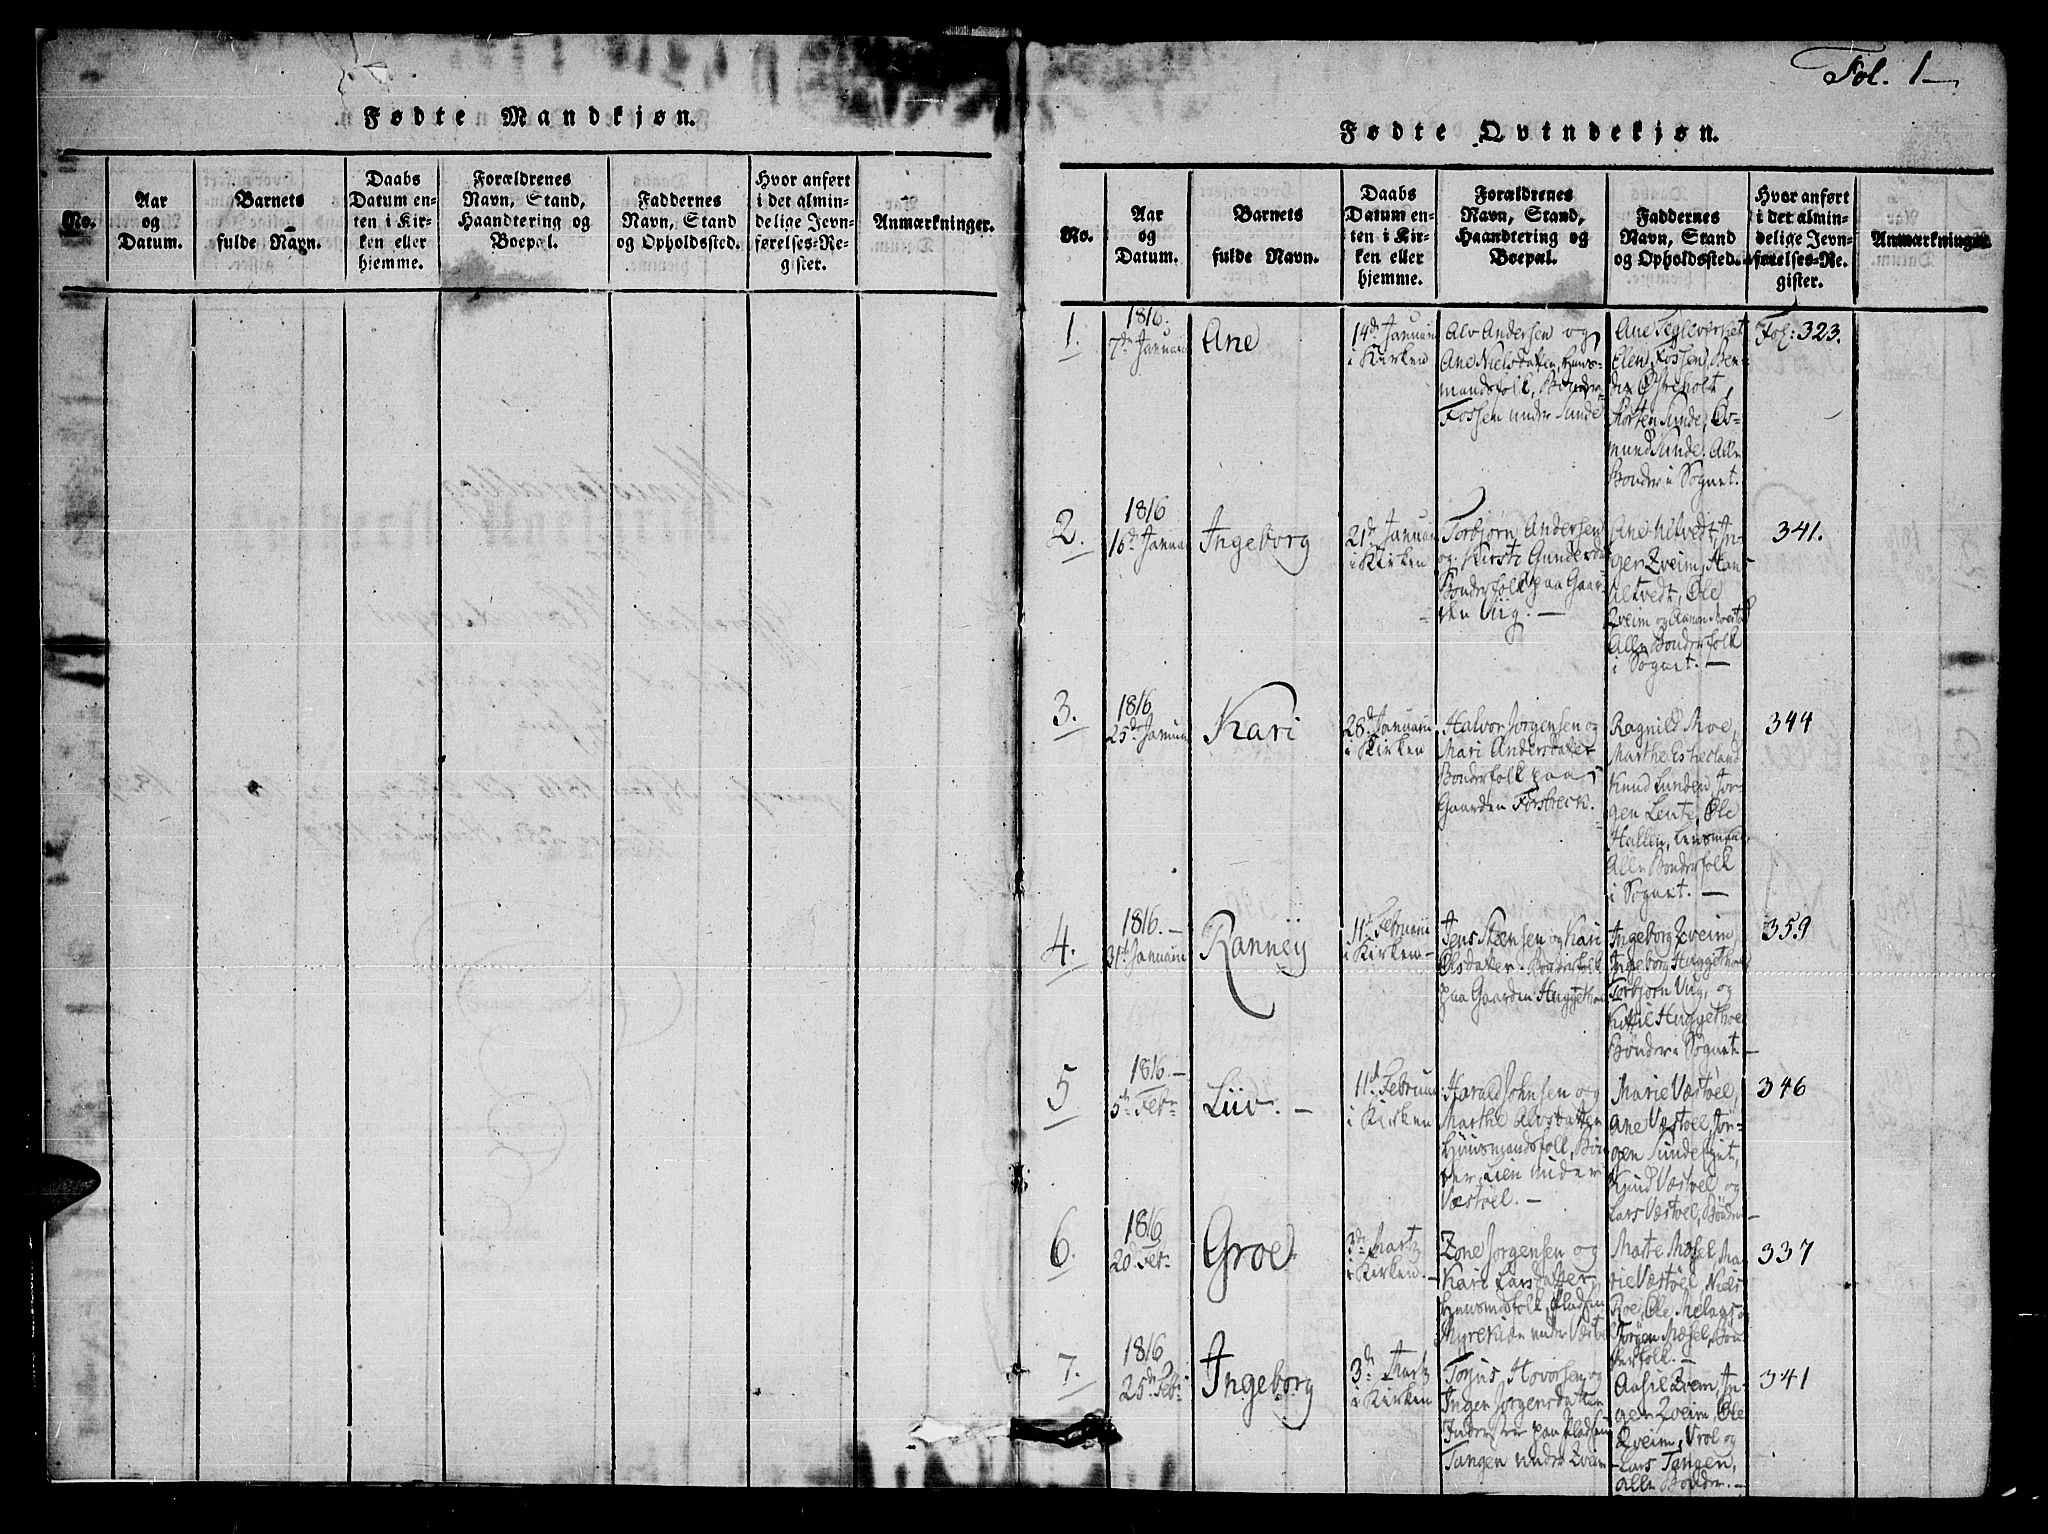 Fol. 1
Fødte Mandkjøn.
No.
Aar
og
Datum.
Barnets
fulde Navn.
Daabs
Datum en-
ten i Kir-
ken eller
hjemme.
Forældrenes
Navn, Stand,
Haandtering og
Boepæl.
Faddernes
Navn, Stand
og Opholdssted.
Hvor anført
i det almin-
delige Jevn-
førelses-Re-
gister.
Anmærkninger.
Fødte Qvindekjøn.
No.
Aar
og
Datum.
Barnets
fulde Navn.
Daabs
Datum en-
ten i Kir-
ken eller
hjemme.
Forældrenes
Navn, Stand,
Haandtering og
Boepæl.
Faddernes
Navn, Stand
og Opholdssted.
Hvor anført
i det almin-
delige Jevn-
førelses-Re-
gister.
Anmærkninger.
1.
1816.
7de Januarii
Ane
14de Januarii
i Kirken
Alv Andersen og
Ane Nielsdatter, Huus-
mandsfolk, Bønder
Fossen under Sunde
Ane Tegleverket
Elen Fossen,
Østreholt,
Morten Sunde, Os-
mund Sunde. Alle
Bønder i Sognet.
Fol: 323.
2.
1816
16de Januar
Ingeborg
21de Januarii
i Kirken
Torbjørn Andersen
og Kirsti Gundersd
Bonderfolk paa Gaar-
den Viig. —
Ane Altvedt, In-
ger Zveim, Hans
Altvedt, Ole
Zveim og
Alle Bonderfolk
i Sognet. —
341.
3.
1816
25de Januar
Kari
28de Januarii
i Kirken
Halvor Jorgensen og
Mari Andersdatter
Bonderfolk paa
Gaarden Forsbeck.
Ragnild Moe,
Marthe Estieland
Knud Lunden, Jor-
gen Lente, Ole
Hallen, Lensmand
Alle Bonderfolk
i Sognet. —
344
4.
1816. —
31te Januarii
Ranneÿ
11te Februarii
i Kirken —
Jens Steensen og Kari
Olsdatter. Bonderfolk
paa Gaarden Huggethoel
Ingeborg Zveim,
Ingeborg Huggethoel
Torbjorn Viig, og
Kittil Huggethoel
Bønder i Sognet —
359
5
1816. —
5te Febr
Liiv. —
11te Februarii
i Kirken
Harald Johnsen og
Marthe Alvsdatter
Huusmandsfolk, Bøn
der under
Væstøel. —
Marie Væstøel,
Ane Væstøel, Jør-
gen Sunde
Knud Væstøel og
Lars Væstøel, Bønder —
346
6.
1816
20de Febr
Groe
3de Martz
i Kirken. —
Zone Jorgensen og
Kari Larsdatter
Huusmdsfolk, Pladsen
Myrekiær under Væstøl
Marte Mæsel, Ma-
rie Væstøel, Niels
Roe, Ole Melaas og
Jørgen Mæsel, Bøn
derfolk. —
337
7.
1816
25de Febr
Ingeborg
3de Martz
i Kirken
Torjus Hovorsen og
Inger Jorgensdatter
paa Pladsen
Tangen under Zveim
Aasil Zveim, In-
ger Zveim, Ole
Zveim, Vrol og
Lars Tangen,
Alle Bonder. —
341